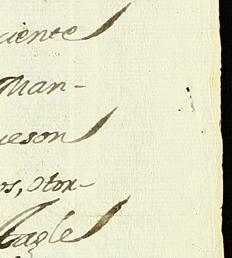 ciente
Man-
ueson
os, otor-
tagle